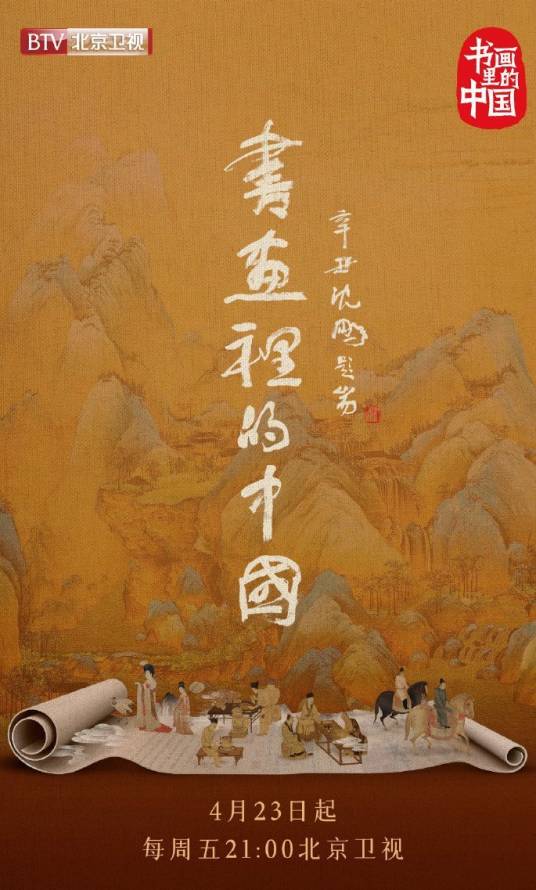 BTV 北京卫视
书画里的中国
書画裡的中國
辛丑沈鹏题耑
4月23日起
每周五21:00北京卫视